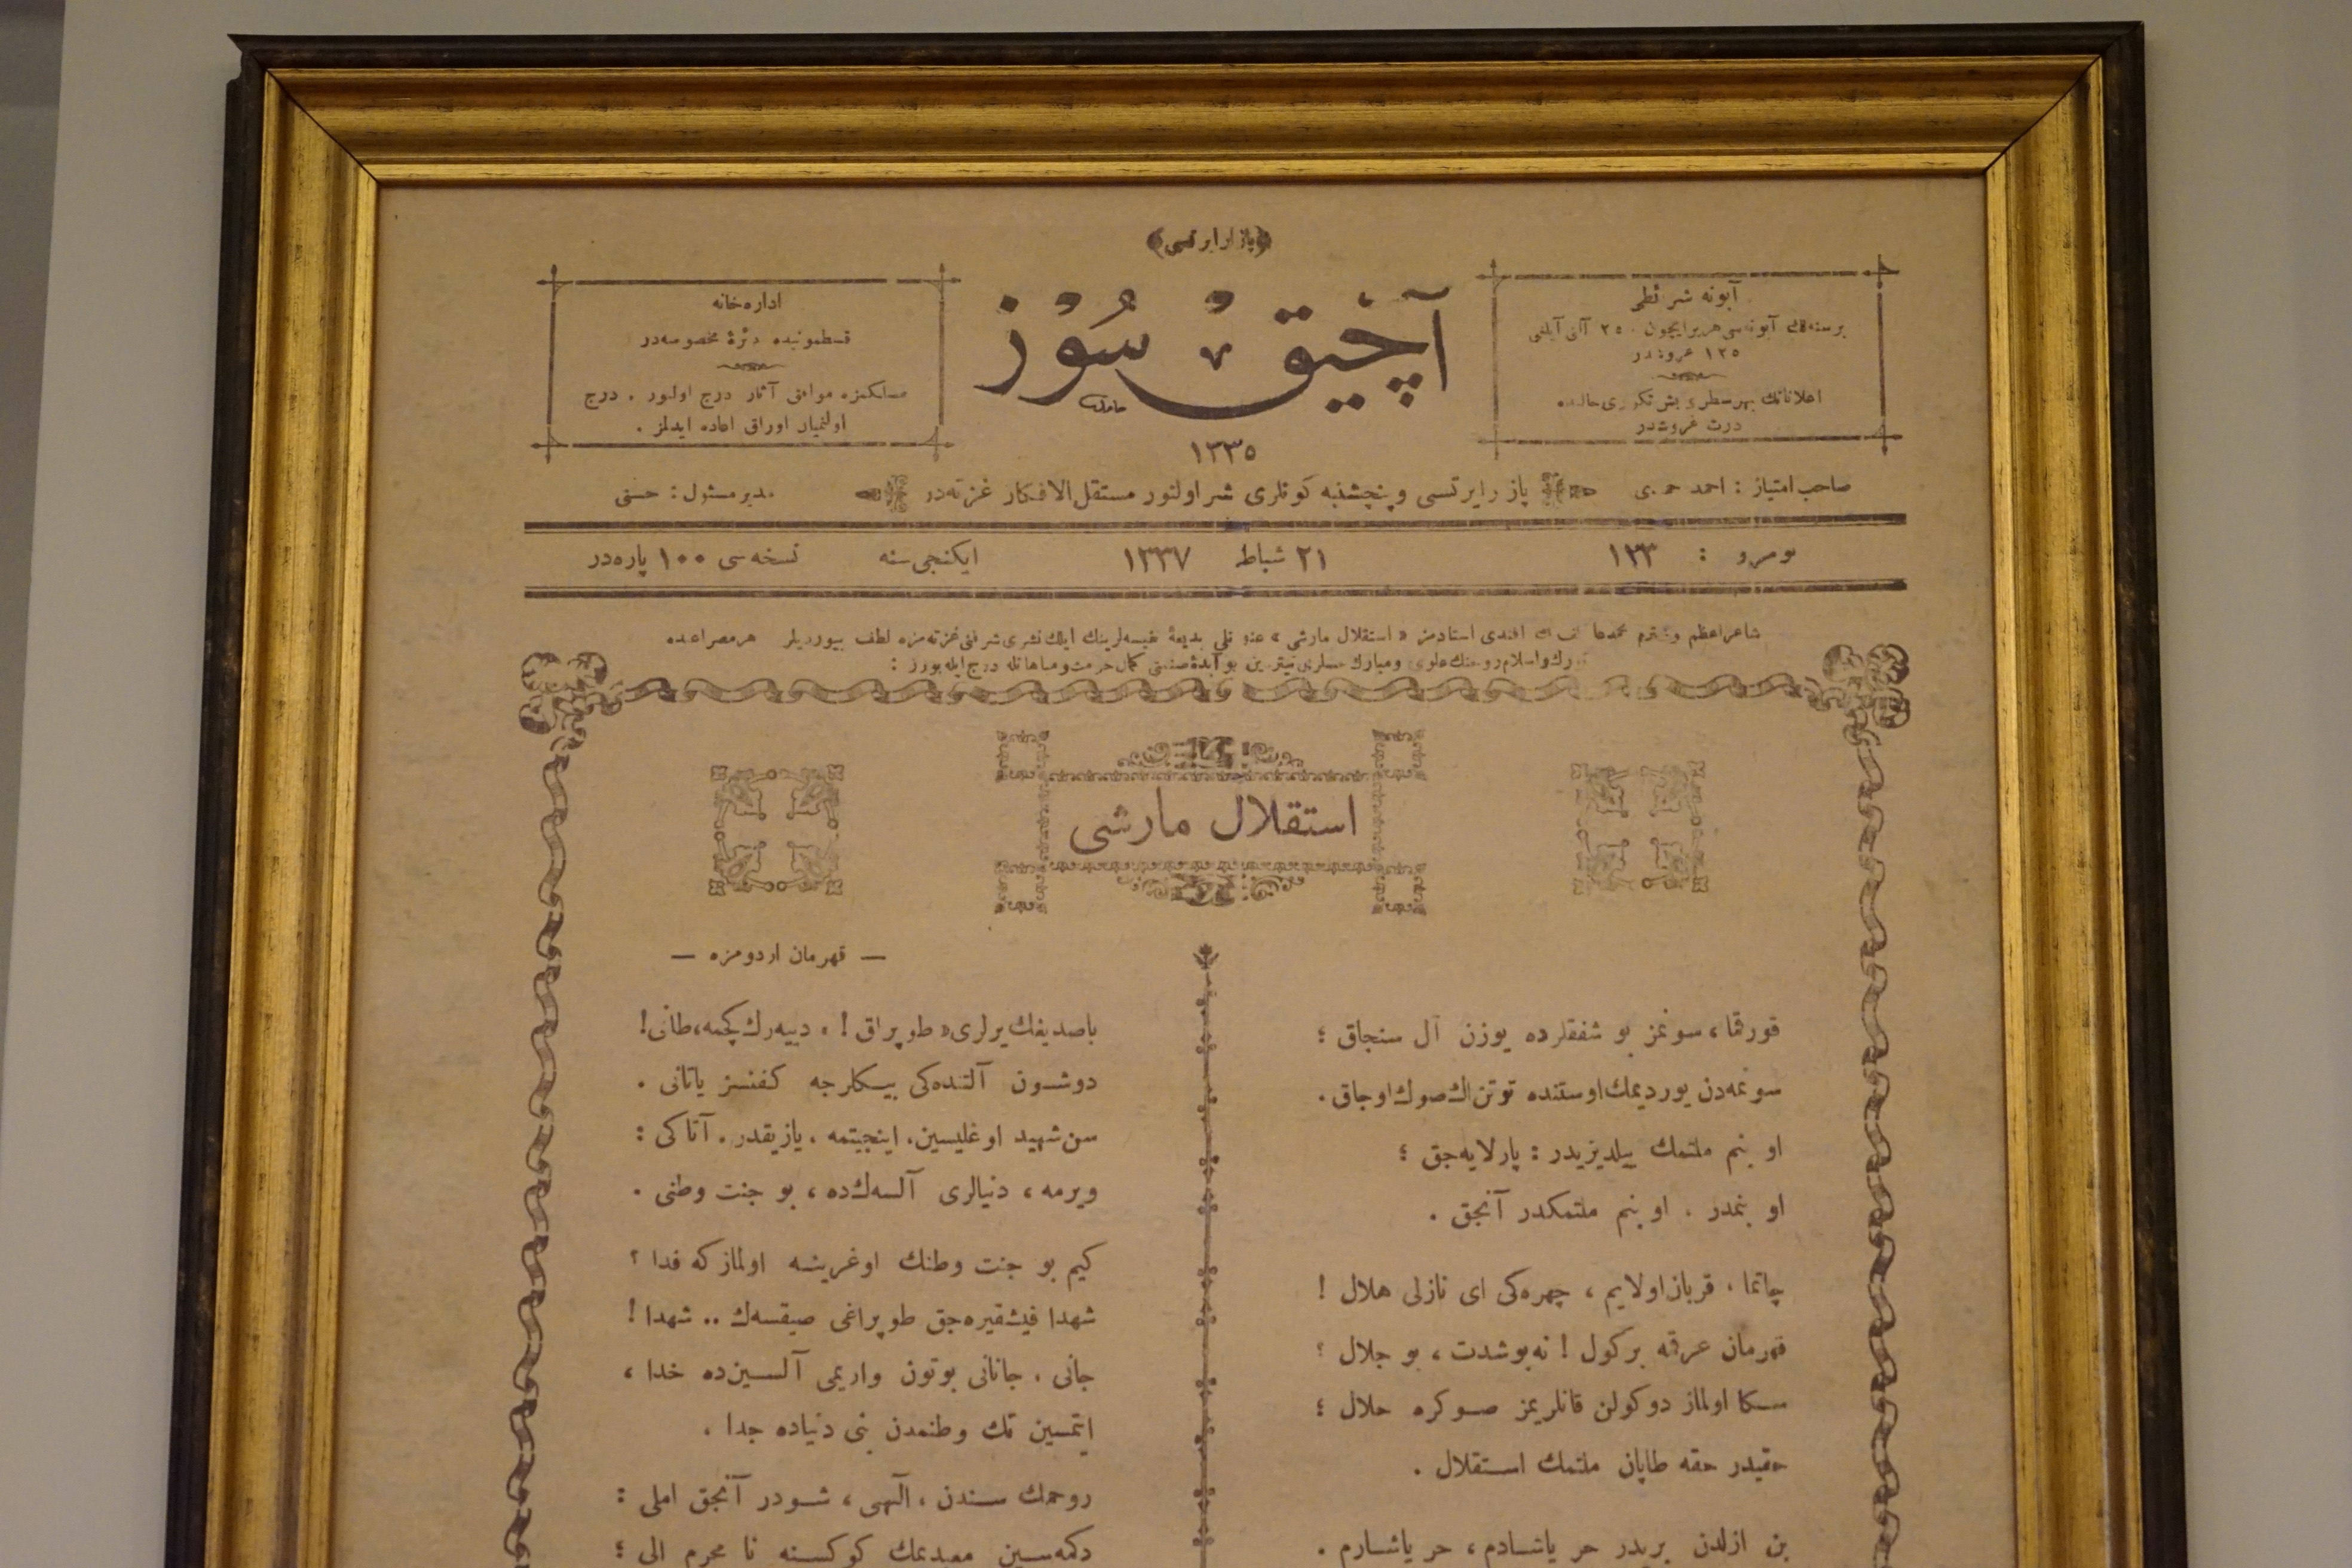 ﴿پازار ایرتسی﴾
آبونه شرائطی
برسنه‌لك آبونه‌سی هر یر ایچون ٢٥٠ آلتی آیلغی
١٣٥ غروشدر
اعلاناتك بهر سطری بش تكرری حالنده
درت غروشدر
آچیق سوز
١٣٣٥
اداره‌خانه
قسطمونیده دائرهٔ مخصوصه‌در
مسلكمزه موافق آثار درج اولنور . درج
اولنمیان اوراق اعاده ایدلمز .
صاحب امتیاز : احمد حمدی
پازار ایرتسی و پنچشنبه كونلری نشر اولنور مستقل الافكار غزته‌در
مدیر مسئول : حسنی
نومرو : ١٣٣
٢١ شباط ١٣٣٧
ایكنجی سنه
نسخه‌سی ١٠٠ پاره‌در
شاعر اعظم و محترم محمد عاكف بك افندی استادمز « استقلال مارشی » عنوانلی بدیعهٔ نفیسه‌لرینك ایلك نشری شرفنی غزته‌مزه لطف بیوردیلر هر مصراعنده
تورك و اسلام روحنك علوی و مبارك حسلری تیتره‌ین بو آبدهٔ صنعتی كمال حرمت و مباهاتله درج ایلیورز :
استقلال مارشی
— قهرمان اردومزه —
قورقما ، سونمز بو شفقلرده یوزن آل سنجاق ؛
سونمه‌دن یوردیمك اوستنده توتن اك صوك اوجاق .
او بنم ملتمك ییلدیزیدر : پارلایه‌جق ؛
او بنمدر . او بنم ملتمكدر آنجق .
چاتما ، قربان اولایم ، چهره‌كی ای نازلی هلال !
قهرمان عرقمه بر كول ! نه بو شدت ، بو جلال ؟
سكا اولماز دوكولن قانلریمز صوكره حلال ؛
حقیدر حقه طاپان ملتمك استقلال .
بن ازلدن بریدر حر یاشادم ، حر یاشارم .
باصدیغك یرلری « طوپراق ! » دییه‌رك كچمه ، طانی !
دوشون آلتنده‌كی بیكلرجه كفنسز یاتانی .
سن شهید اوغلیسین ، اینجیتمه ، یازیقدر . آتاكی :
ویرمه ، دنیالری آلسه‌ك ده ، بو جنت وطنی .
كیم بو جنت وطنك اوغرینه اولمازكه فدا ؟
شهدا فیشقیره‌جق طوپراغی صیقسه‌ك .. شهدا !
جانی ، جانانی بوتون واریمی آلسین ده خدا ،
ایتمسین تك وطنمدن بنی دنیاده جدا .
روحمك سندن ، آلهی ، شودر آنجق املی :
دكمه‌سین معبدیمك كوكسنه نا محرم الی ؛